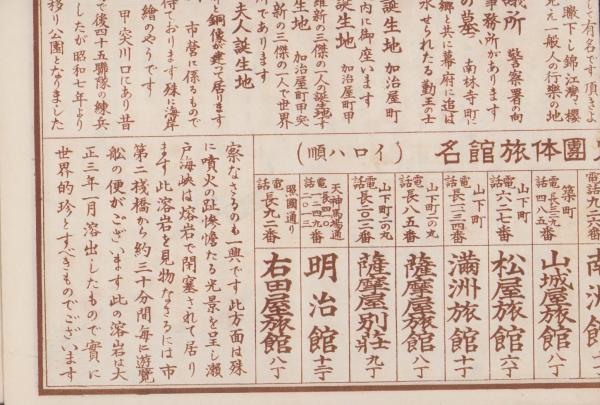 して有名です頂きよ
瞰下し錦江灣、櫻
え一般人の行樂の地
儀所 警察署の向
事務所があります
の墓 南林寺町に
郷と共に幕府に追は
水せられたる勤王の士
誕生地 加治屋町
内に御座います
誕生地 加治屋町甲
維新の三傑の一人の誕生地す
誕生地 加治屋町甲突
新の三傑の一人で世界
所であります
り銅像が建つて居ります
夫人誕生地
市營に係るもので
待ております殊に海岸
繪のやうです
甲突川口にあり昔
で後四十五聯隊の練兵
したが昭和七年より
移り公園となりました
團体旅館名 (イロハ順)
南洲館
築町 電話長三元四八五番 山城屋旅館 八丁
山下町 電話六二七番 松屋旅館 六丁
山下町 電話長二三四番 滿洲旅館 十丁
山下町二の丸 電話長八五番 薩摩屋旅館 八丁
山下町二の丸 電話長二〇二番 薩摩屋別荘 九丁
天神馬場通 電話 明治館 十二丁
照國通り 電話長九二番 右田屋旅館 八丁
察なさるのも一興です此方面は殊
に噴火の趾慘憺たる光景を呈し瀬
戸海峡は熔岩で閉塞されて居り
ます此溶岩を見物なさるには市
第二棧橋から約三十分間毎に遊覽
船の便がございます此の溶岩は大
正三年一月溶出したもので實に
世界的珍とすべきものでございます